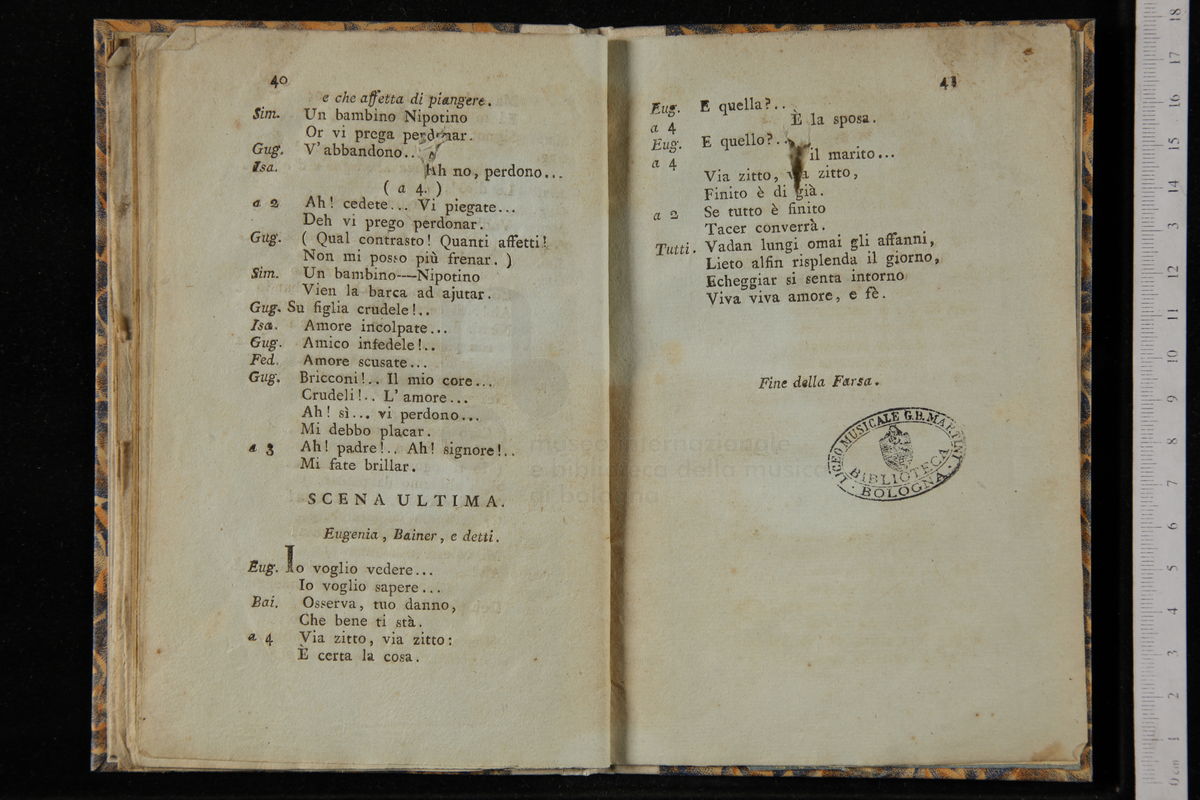 40
e che affetta di piangere.
Sim. Un bambino Nipotino
Or vi prega perdonar.
Gug. V'abbandono...
Isa. Ah no, perdono...
( a 4. )
a 2 Ah! cedete... Vi piegate...
Deh vi prego perdonar.
Gug. ( Qual contrasto! Quanti affetti!
Non mi posso più frenar. )
Sim. Un bambino----Nipotino
Vien la barca ad ajutar.
Gug. Su figlia crudele!..
Isa. Amore incolpate...
Gug. Amico infedele!..
Fed. Amore scusate...
Gug. Bricconi!.. Il mio core...
Crudeli!.. L'amore...
Ah! sì... vi perdono...
Mi debbo placar.
a 3 Ah! padre!.. Ah! signore!..
Mi fate brillar.
SCENA ULTIMA.
Eugenia, Bainer, e detti.
Eug. Io voglio vedere...
Io voglio sapere...
Bai. Osserva, tuo danno,
Che bene ti stà.
a 4 Via zitto, via zitto:
È certa la cosa.
41
Eug. E quella?..
a 4 È la sposa.
Eug. E quello?..
a 4 il marito...
Via zitto, via zitto,
Finito è di già.
a 2 Se tutto è finito
Tacer converrà.
Tutti. Vadan lungi omai gli affanni,
Lieto alfin risplenda il giorno,
Echeggiar si senta intorno
Viva viva amore, e fè.
Fine della Farsa.
LICEO MUSICALE G.B. MARTINI
BIBLIOTECA
BOLOGNA
museo internazionale
e biblioteca della musica
di bologna
0 cm 1 2 3 4 5 6 7 8 9 10 11 12 13 14 15 16 17 18